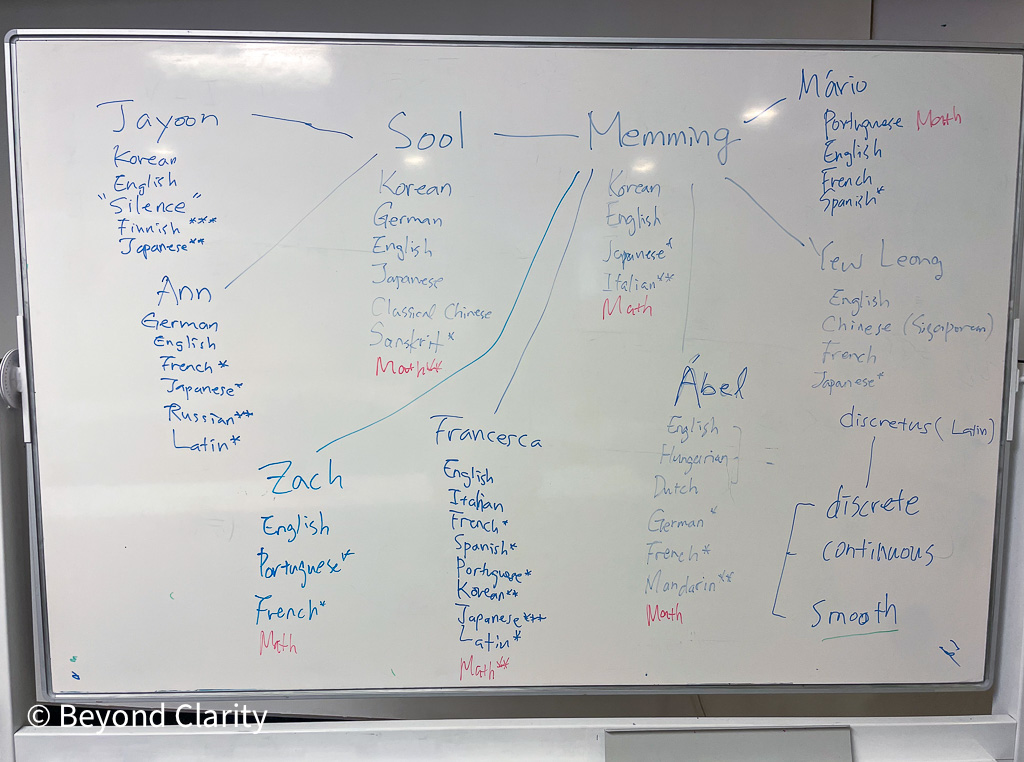 Jayoon
Korean
English
"Silence"
Finnish ***
Japanese**
Ann
German
English
French *
Japanese*
Russian**
Latin*
Sool
Korean
German
English
Japanese
Classical Chinese
Sanskrit *
Math**
Memming
Korean
English
Japanese*
Italian**
Math
Mário
Portuguese Math
English
French
Spanish*
Yew Leong
English
Chinese (Sigaporean)
French
Japanese*
Zach
English
Portuguese*
French*
Math
Francesca
English
Italian
French*
Spanish*
Portuguese*
Korean**
Japanese***
Latin*
Math**
Ábel
English
Hungarian
Dutch
German*
French*
Mandarin**
Math
discretus (Latin)
discrete
continuous
smooth
© Beyond Clarity